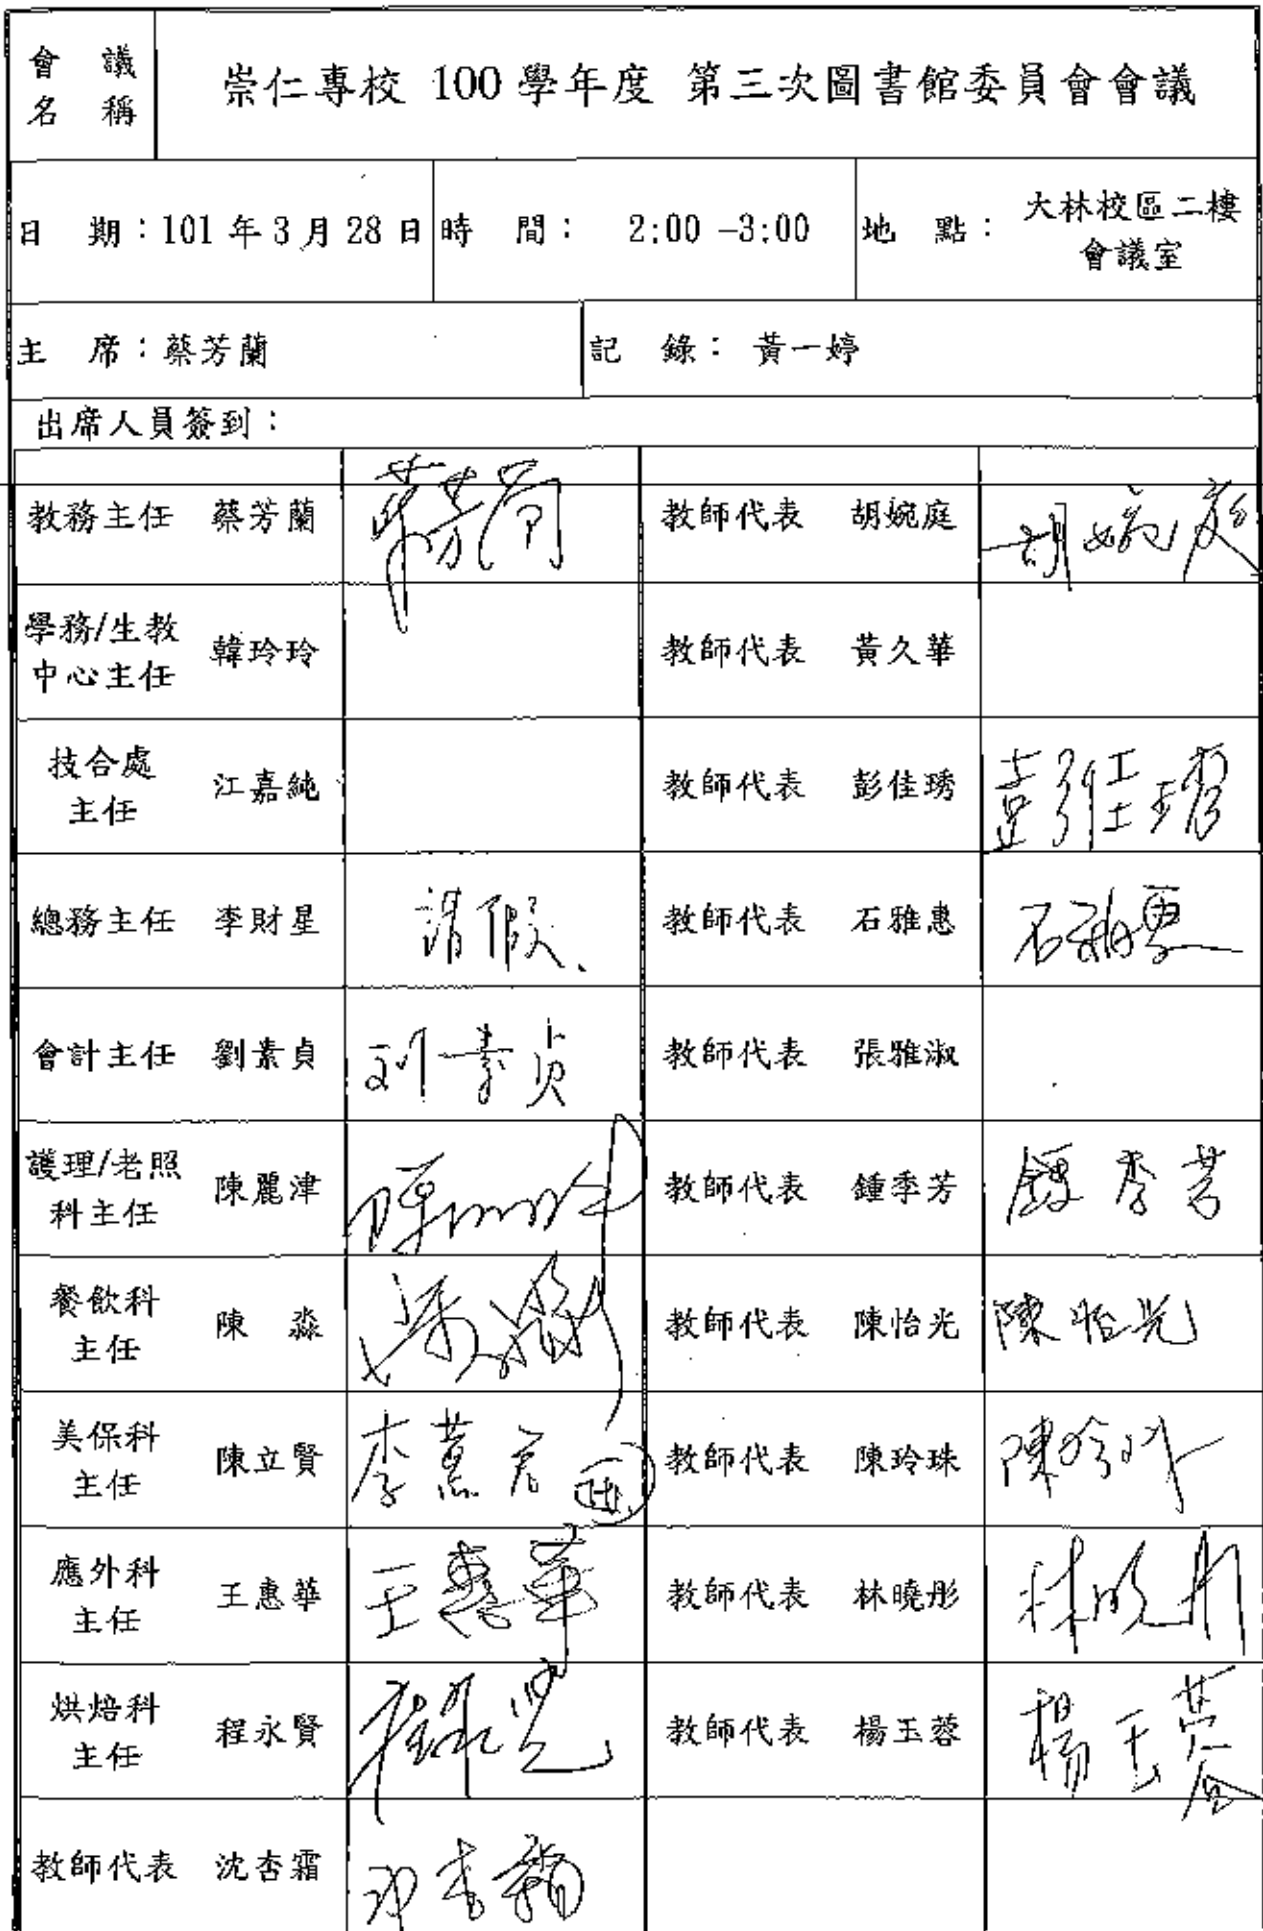 會議名稱 崇仁專校 100 學年度 第三次圖書館委員會會議
日 期：101 年 3 月 28 日 時 間： 2:00 -3:00 地 點： 大林校區二樓會議室
主 席：蔡芳蘭 記 錄： 黃一婷
出席人員簽到：
教務主任 蔡芳蘭 蔡芳蘭 教師代表 胡婉庭 胡婉庭
學務/生教中心主任 韓玲玲 教師代表 黃久華
技合處主任 江嘉純 教師代表 彭佳琇 彭佳琇
總務主任 李財星 請假、 教師代表 石雅惠 石雅惠
會計主任 劉素貞 刘素貞 教師代表 張雅淑
護理/老照科主任 陳麗津 教師代表 鍾季芳 鍾季芳
餐飲科主任 陳 淼 教師代表 陳怡光 陳怡光
美保科主任 陳立賢 李蕙君 教師代表 陳玲珠 陳玲珠
應外科主任 王惠華 王惠華 教師代表 林曉彤 林曉彤
烘焙科主任 程永賢 程永賢 教師代表 楊玉蓉 楊玉蓉
教師代表 沈杏霜 沈杏霜